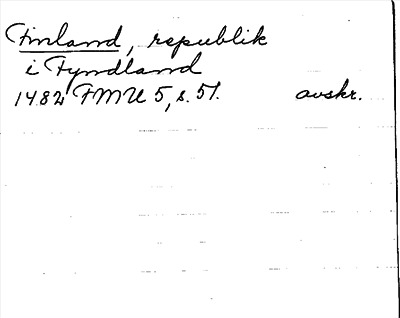 Finland, republik
i Fyndland
1482 FMU 5, s. 51. avskr.